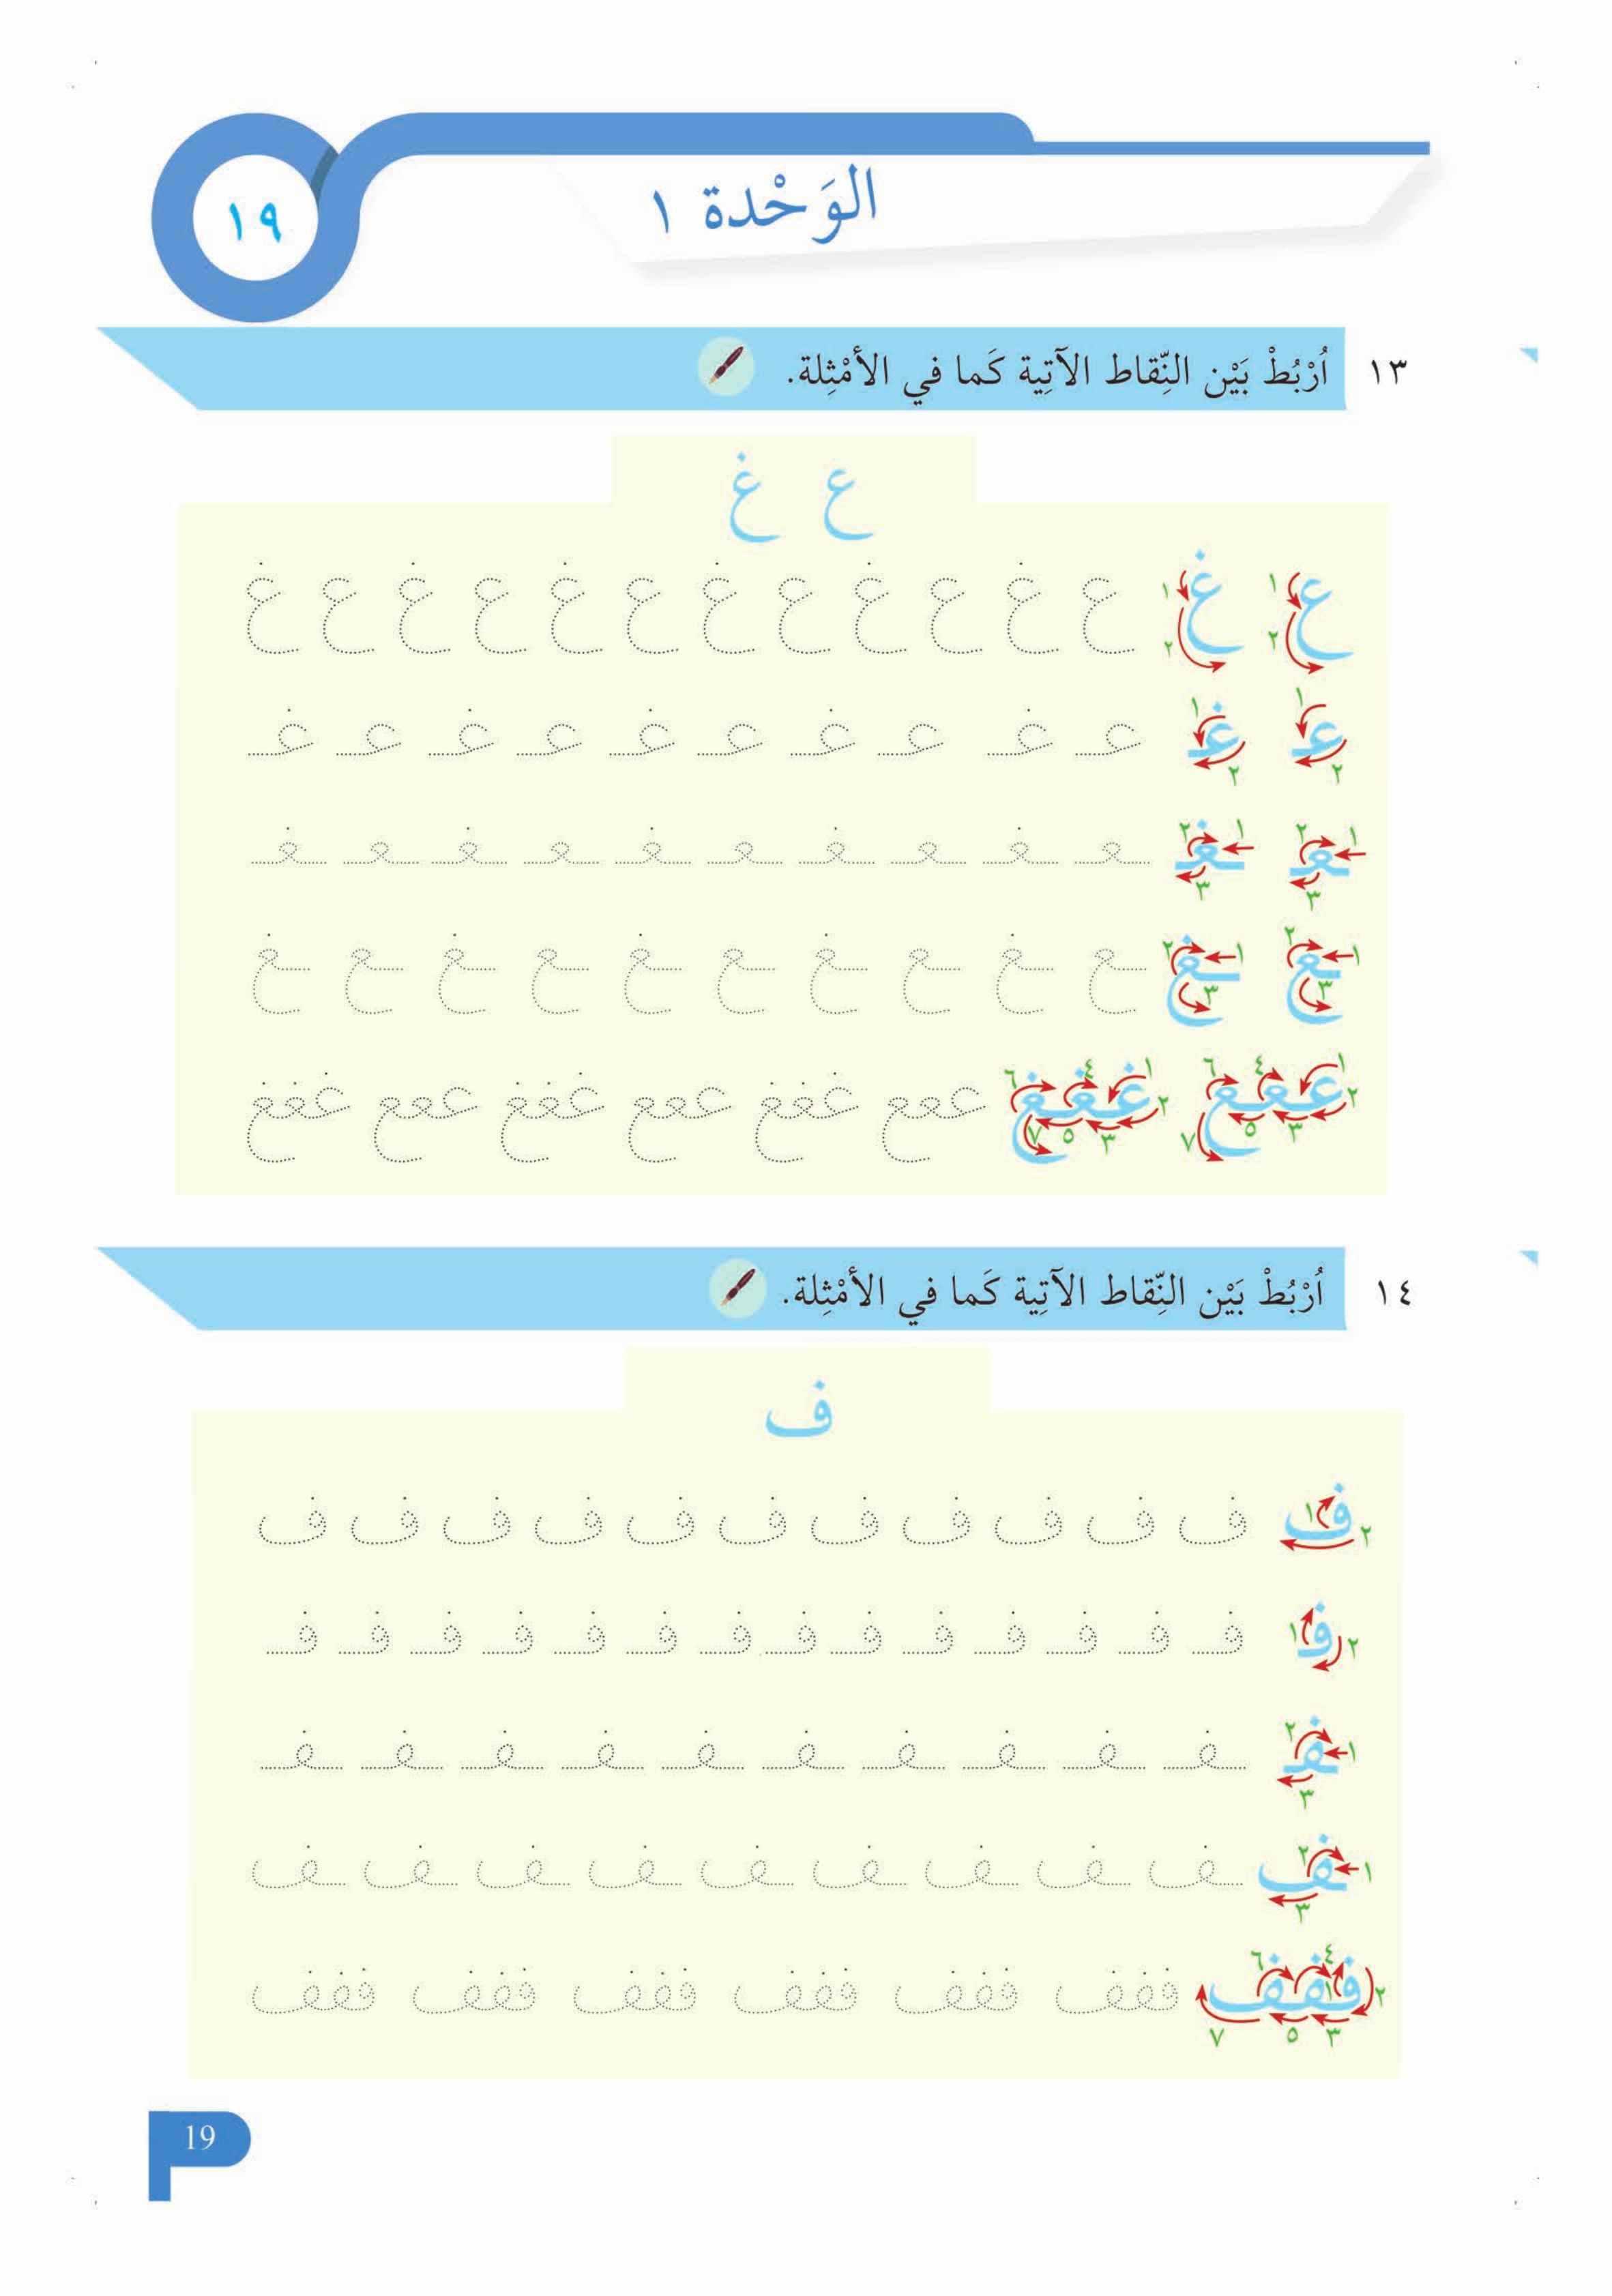 الوَحْدة ١
١٩
١٣ اُرْبُطْ بَيْن النِّقاط الآتِية كَما في الأمْثِلة.
ع غ
ع غ ع غ ع غ ع غ ع غ ع غ ع غ
عـ غـ عـ غـ عـ غـ عـ غـ عـ غـ عـ غـ
ـعـ ـغـ ـعـ ـغـ ـعـ ـغـ ـعـ ـغـ ـعـ ـغـ ـعـ ـغـ
ـع ـغ ـع ـغ ـع ـغ ـع ـغ ـع ـغ ـع ـغ
ععع غغغ ععع غغغ ععع غغغ ععع غغغ
١٤ اُرْبُطْ بَيْن النِّقاط الآتِية كَما في الأمْثِلة.
ف
ف ف ف ف ف ف ف ف ف ف ف ف
فـ فـ فـ فـ فـ فـ فـ فـ فـ فـ فـ فـ فـ فـ فـ
ـفـ ـفـ ـفـ ـفـ ـفـ ـفـ ـفـ ـفـ ـفـ ـفـ ـفـ
ـف ـف ـف ـف ـف ـف ـف ـف ـف ـف
ففف ففف ففف ففف ففف ففف ففف
19